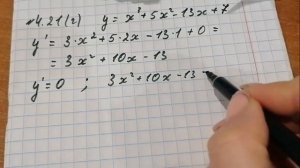 №4.21(г) y = x³+5x²-13x+7
y' = 3·x²+5·2x-13·1+0 =
= 3x²+10x-13
y'=0 ; 3x²+10x-13